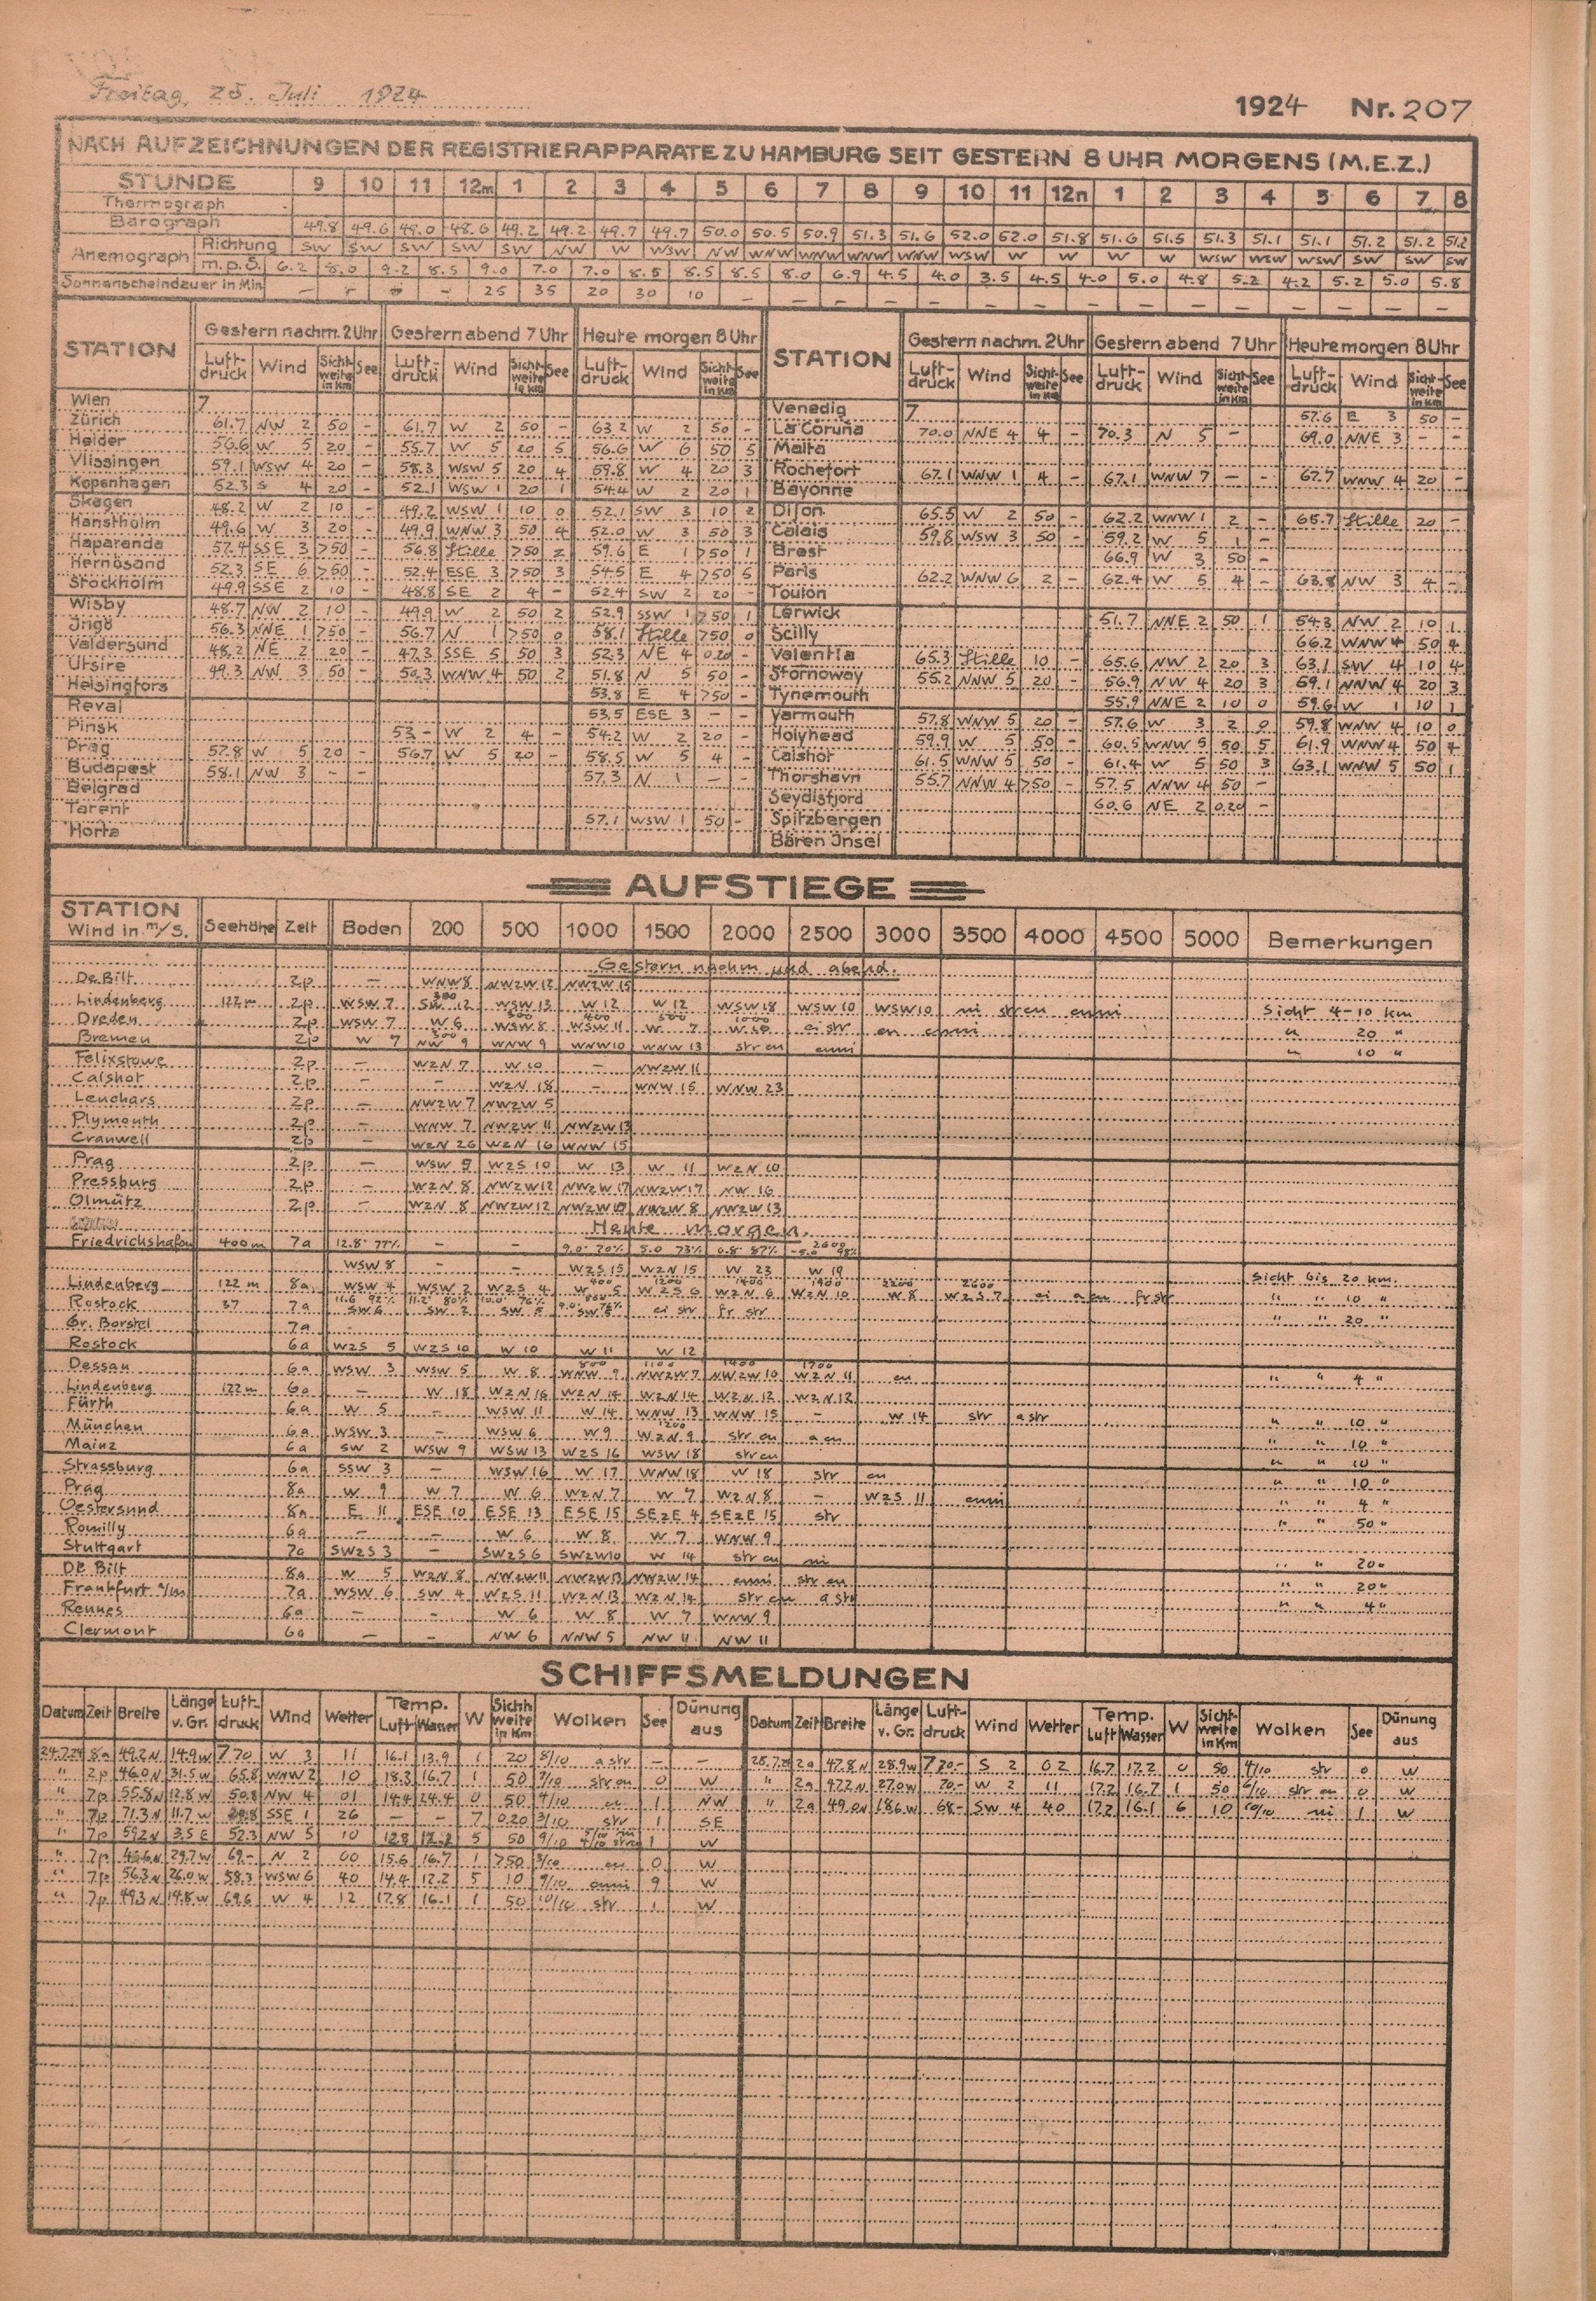 Freitag, 25. Juli 1924
1924 Nr. 207
NACH AUFZEICHNUNGEN DER REGISTRIERAPPARATE ZU HAMBURG SEIT GESTERN 8 UHR MORGENS (M.E.Z.)
STUNDE 9 10 11 12m 1 2 3 4 5 6 7 8 9 10 11 12n 1 2 3 4 5 6 7 8
Thermograph
Barograph 49.8 49.6 49.0 48.6 49.2 49.2 49.7 49.7 50.0 50.5 50.9 51.3 51.6 52.0 52.0 51.8 51.6 51.5 51.3 51.1 51.1 51.2 51.2 51.2
Anemograph Richtung SW SW SW SW SW NW W WSW NW WNW WNW WNW WNW WSW W W W W WSW WSW WSW SW SW SW
m.p.S. 6.2 8.0 9.2 8.5 9.0 7.0 7.0 8.5 8.5 8.5 8.0 6.9 4.5 4.0 3.5 4.5 4.0 5.0 4.8 5.2 4.2 5.2 5.0 5.8
Sonnenscheindauer in Min. – – – – 25 35 20 30 10 – – – – – – – – – – – – – – –
STATION Gestern nachm. 2 Uhr Gestern abend 7 Uhr Heute morgen 8 Uhr STATION Gestern nachm. 2 Uhr Gestern abend 7 Uhr Heute morgen 8 Uhr
Luftdruck Wind Sichtweite in Km See Luftdruck Wind Sichtweite in Km See Luftdruck Wind Sichtweite in Km See Luftdruck Wind Sichtweite in Km See Luftdruck Wind Sichtweite in Km See Luftdruck Wind Sichtweite in Km See
Wien 7 Venedig 7 57.6 E 3 50 –
Zürich 61.7 NW 2 50 – 61.7 W 2 50 – 63.2 W 2 50 – La Coruña 70.0 NNE 4 4 – 70.3 N 5 – 69.0 NNE 3 – –
Helder 56.6 W 5 20 – 55.7 W 5 20 5 56.6 W 6 50 5 Malta
Vlissingen 59.1 WSW 4 20 – 58.3 WSW 5 20 4 59.8 W 4 20 3 Rochefort 67.1 WNW 1 4 – 67.1 WNW 7 – – 67.7 WNW 4 20 –
Kopenhagen 52.3 S 4 20 – 52.1 WSW 1 20 1 54.4 W 2 20 1 Bayonne
Skagen 48.2 W 2 10 – 49.2 WSW 1 10 0 52.1 SW 3 10 2 Dijon 65.5 W 2 50 – 62.2 WNW 1 2 – 65.7 Stille 20 –
Hanstholm 49.6 W 3 20 – 49.9 WNW 3 50 4 52.0 W 3 50 3 Calais 59.8 WSW 3 50 – 59.2 W 5 1 –
Haparanda 57.4 SSE 3 >50 – 56.8 Stille >50 2 59.6 E 1 >50 1 Brest 66.9 W 3 50 –
Hernösand 52.3 SE 6 >50 – 52.4 ESE 3 >50 3 54.5 E 4 >50 5 Paris 62.2 WNW 6 2 – 62.4 W 5 4 – 63.8 NW 3 4 –
Stockholm 49.9 SSE 2 10 – 48.8 SE 2 4 – 52.4 SW 2 20 – Toulon
Wisby 48.7 NW 2 10 – 49.9 W 2 50 2 52.9 SSW 1 >50 1 Lerwick 51.7 NNE 2 50 1 54.3 NW 2 10 1
Ingö 56.3 NNE 1 >50 – 56.7 N 1 >50 0 58.1 Stille >50 0 Scilly 66.2 WNW 4 50 4
Valdersund 48.2 NE 2 20 – 47.3 SSE 5 50 3 52.3 NE 4 0.20 – Valentia 65.3 Stille 10 – 65.6 NW 2 20 3 63.1 SW 4 10 4
Utsire 49.3 NW 3 50 – 50.3 WNW 4 50 2 51.8 N 5 50 – Stornoway 55.2 NNW 5 20 – 56.9 NW 4 20 3 59.1 NNW 4 20 3
Helsingfors 53.8 E 4 >50 – Tynemouth 55.9 NNE 2 10 0 59.6 W 1 10 1
Reval 53.5 ESE 3 – – Yarmouth 57.8 WNW 5 20 – 57.6 W 3 2 0 59.8 WNW 4 10 0
Pinsk 53.– W 2 4 – 54.2 W 2 20 – Holyhead 59.9 W 5 50 – 60.5 WNW 5 50 5 61.9 WNW 4 50 4
Prag 57.8 W 5 20 – 56.7 W 5 20 – 58.5 W 5 4 – Calshot 61.5 WNW 5 50 – 61.4 W 5 50 3 63.1 WNW 5 50 1
Budapest 58.1 NW 3 – – 57.3 N 1 – – Thorshavn 55.7 NNW 4 >50 – 57.5 NNW 4 50 –
Belgrad Seydisfjord 60.6 NE 2 0.20 –
Tarent 57.1 WSW 1 50 – Spitzbergen
Horta Bären Insel
AUFSTIEGE
STATION Wind in m/S. Seehöhe Zeit Boden 200 500 1000 1500 2000 2500 3000 3500 4000 4500 5000 Bemerkungen
Gestern nachm. und abend.
De Bilt 2p – WNW 8 NWzW 12 NWzW 15
Lindenberg 122 m 2p WSW 7 SW 12 WSW 13 W 12 W 12 WSW 18 WSW 10 WSW 10 ni str cu cuni Sicht 4-10 km
Dreden 2p WSW 7 W 6 WSW 8 WSW 11 W 7 W 10 ci str cu cuni " 20 "
Bremen 2p W 7 NW 9 WNW 9 WNW 10 WNW 13 str cu cuni " 10 "
Felixstowe 2p – WzN 7 W 10 – NWzW 11
Calshot 2p – – WzN 18 – WNW 15 WNW 23
Leuchars 2p – NWzW 7 NWzW 5
Plymouth 2p – WNW 7 NWzW 11 NWzW 13
Cranwell 2p – WzN 26 WzN 16 WNW 15
Prag 2p – WSW 9 WzS 10 W 13 W 11 WzN 10
Pressburg 2p – WzN 8 NWzW 12 NWzW 17 NWzW 17 NW 16
Olmütz 2p – WzN 8 NWzW 12 NWzW 10 NWzW 8 NWzW 13
Heute morgen.
Friedrichshafen 400 m 7a 12.8° 77% – – 9.0° 70% 5.0 73% 0.8° 87% 2600 -5.0 98%
WSW 8 – – WzS 15 WzN 15 W 23 W 19 Sicht bis 20 km.
Lindenberg 122 m 8a WSW 4 WSW 2 WzS 4 W 5 WzS 6 WzN 6 WzN 10 W 8 WzS 7 ci a cu fr str " " 10 "
Rostock 37 7a SW 6 SW 2 SW 5 SW 8 ci str fr str " " 20 "
Gr. Borstel 7a
Rostock 6a WzS 5 WzS 10 W 10 W 11 W 12
Dessau 6a WSW 3 WSW 5 W 8 WNW 9 NWzW 7 NWzW 10 WzN 11 cu " " 4 "
Lindenberg 122 m 6a – W 18 WzN 16 WzN 14 WzN 14 WzN 12 WzN 12
Fürth 6a W 5 – WSW 11 W 14 WNW 13 WNW 15 – W 14 str a str " " 10 "
München 6a WSW 3 – WSW 6 W 9 WzN 9 str cu a cu " " 10 "
Mainz 6a SW 2 WSW 9 WSW 13 WzS 16 WSW 18 str cu " " 10 "
Strassburg 6a SSW 3 – WSW 16 W 17 WNW 18 W 18 str cu " " 10 "
Prag 8a W 9 W 7 W 6 WzN 7 W 7 WzN 8 – WzS 11 cuni " " 4 "
Oestersund 8a E 11 ESE 10 ESE 13 ESE 15 SEzE 4 SEzE 15 str " " 50 "
Romilly 6a – – W 6 W 8 W 7 WNW 9
Stuttgart 7a SWzS 3 – SWzS 6 SWzW 10 W 14 str cu ni " " 20 "
De Bilt 8a W 5 WzN 8 NWzW 11 NWzW 13 NWzW 14 cuni str cu " " 20 "
Frankfurt a/m 7a WSW 6 SW 4 WzS 11 WzN 13 WzN 14 str cu a str " " 4 "
Rennes 6a – – W 6 W 8 W 7 WNW 9
Clermont 6a – – NW 6 NNW 5 NW 11 NW 11
SCHIFFSMELDUNGEN
Datum Zeit Breite Länge v. Gr. Luftdruck Wind Wetter Temp. Luft Wasser W Sichtweite in Km Wolken See Dünung aus Datum Zeit Breite Länge v. Gr. Luftdruck Wind Wetter Temp. Luft Wasser W Sichtweite in Km Wolken See Dünung aus
24.7.24 8a 49.2 N 14.9 W 770 W 3 11 16.1 13.9 1 20 8/10 a str – – 25.7.24 2a 47.8 N 28.9 W 770.– S 2 02 16.7 17.2 0 50 4/10 str 0 W
" 2p 46.0 N 31.5 W 65.8 WNW 2 10 18.3 16.7 1 50 9/10 str cu 0 W " 2a 47.2 N 27.0 W 70.– W 2 11 17.2 16.7 1 50 6/10 str cu 0 W
" 7p 55.8 N 12.8 W 50.8 NW 4 01 14.4 24.4 0 50 4/10 cu 1 NW " 2a 49.0 N 18.6 W 68.– SW 4 40 17.2 16.1 6 10 10/10 ni 1 W
" 7p 71.3 N 11.7 W SSE 1 26 – – 7 0.20 3/10 str 1 SE
" 7p 59.2 N 3.5 E 52.3 NW 5 10 12.8 12.2 5 50 9/10 1 W
" 7p 29.7 W 69.– N 2 00 15.6 16.7 1 >50 3/10 cu 0 W
" 7p 56.3 N 26.0 W 58.3 WSW 6 40 14.4 12.2 5 10 9/10 cuni 9 W
" 7p 49.3 N 14.8 W 69.6 W 4 12 17.8 16.1 1 50 10/10 str 1 W